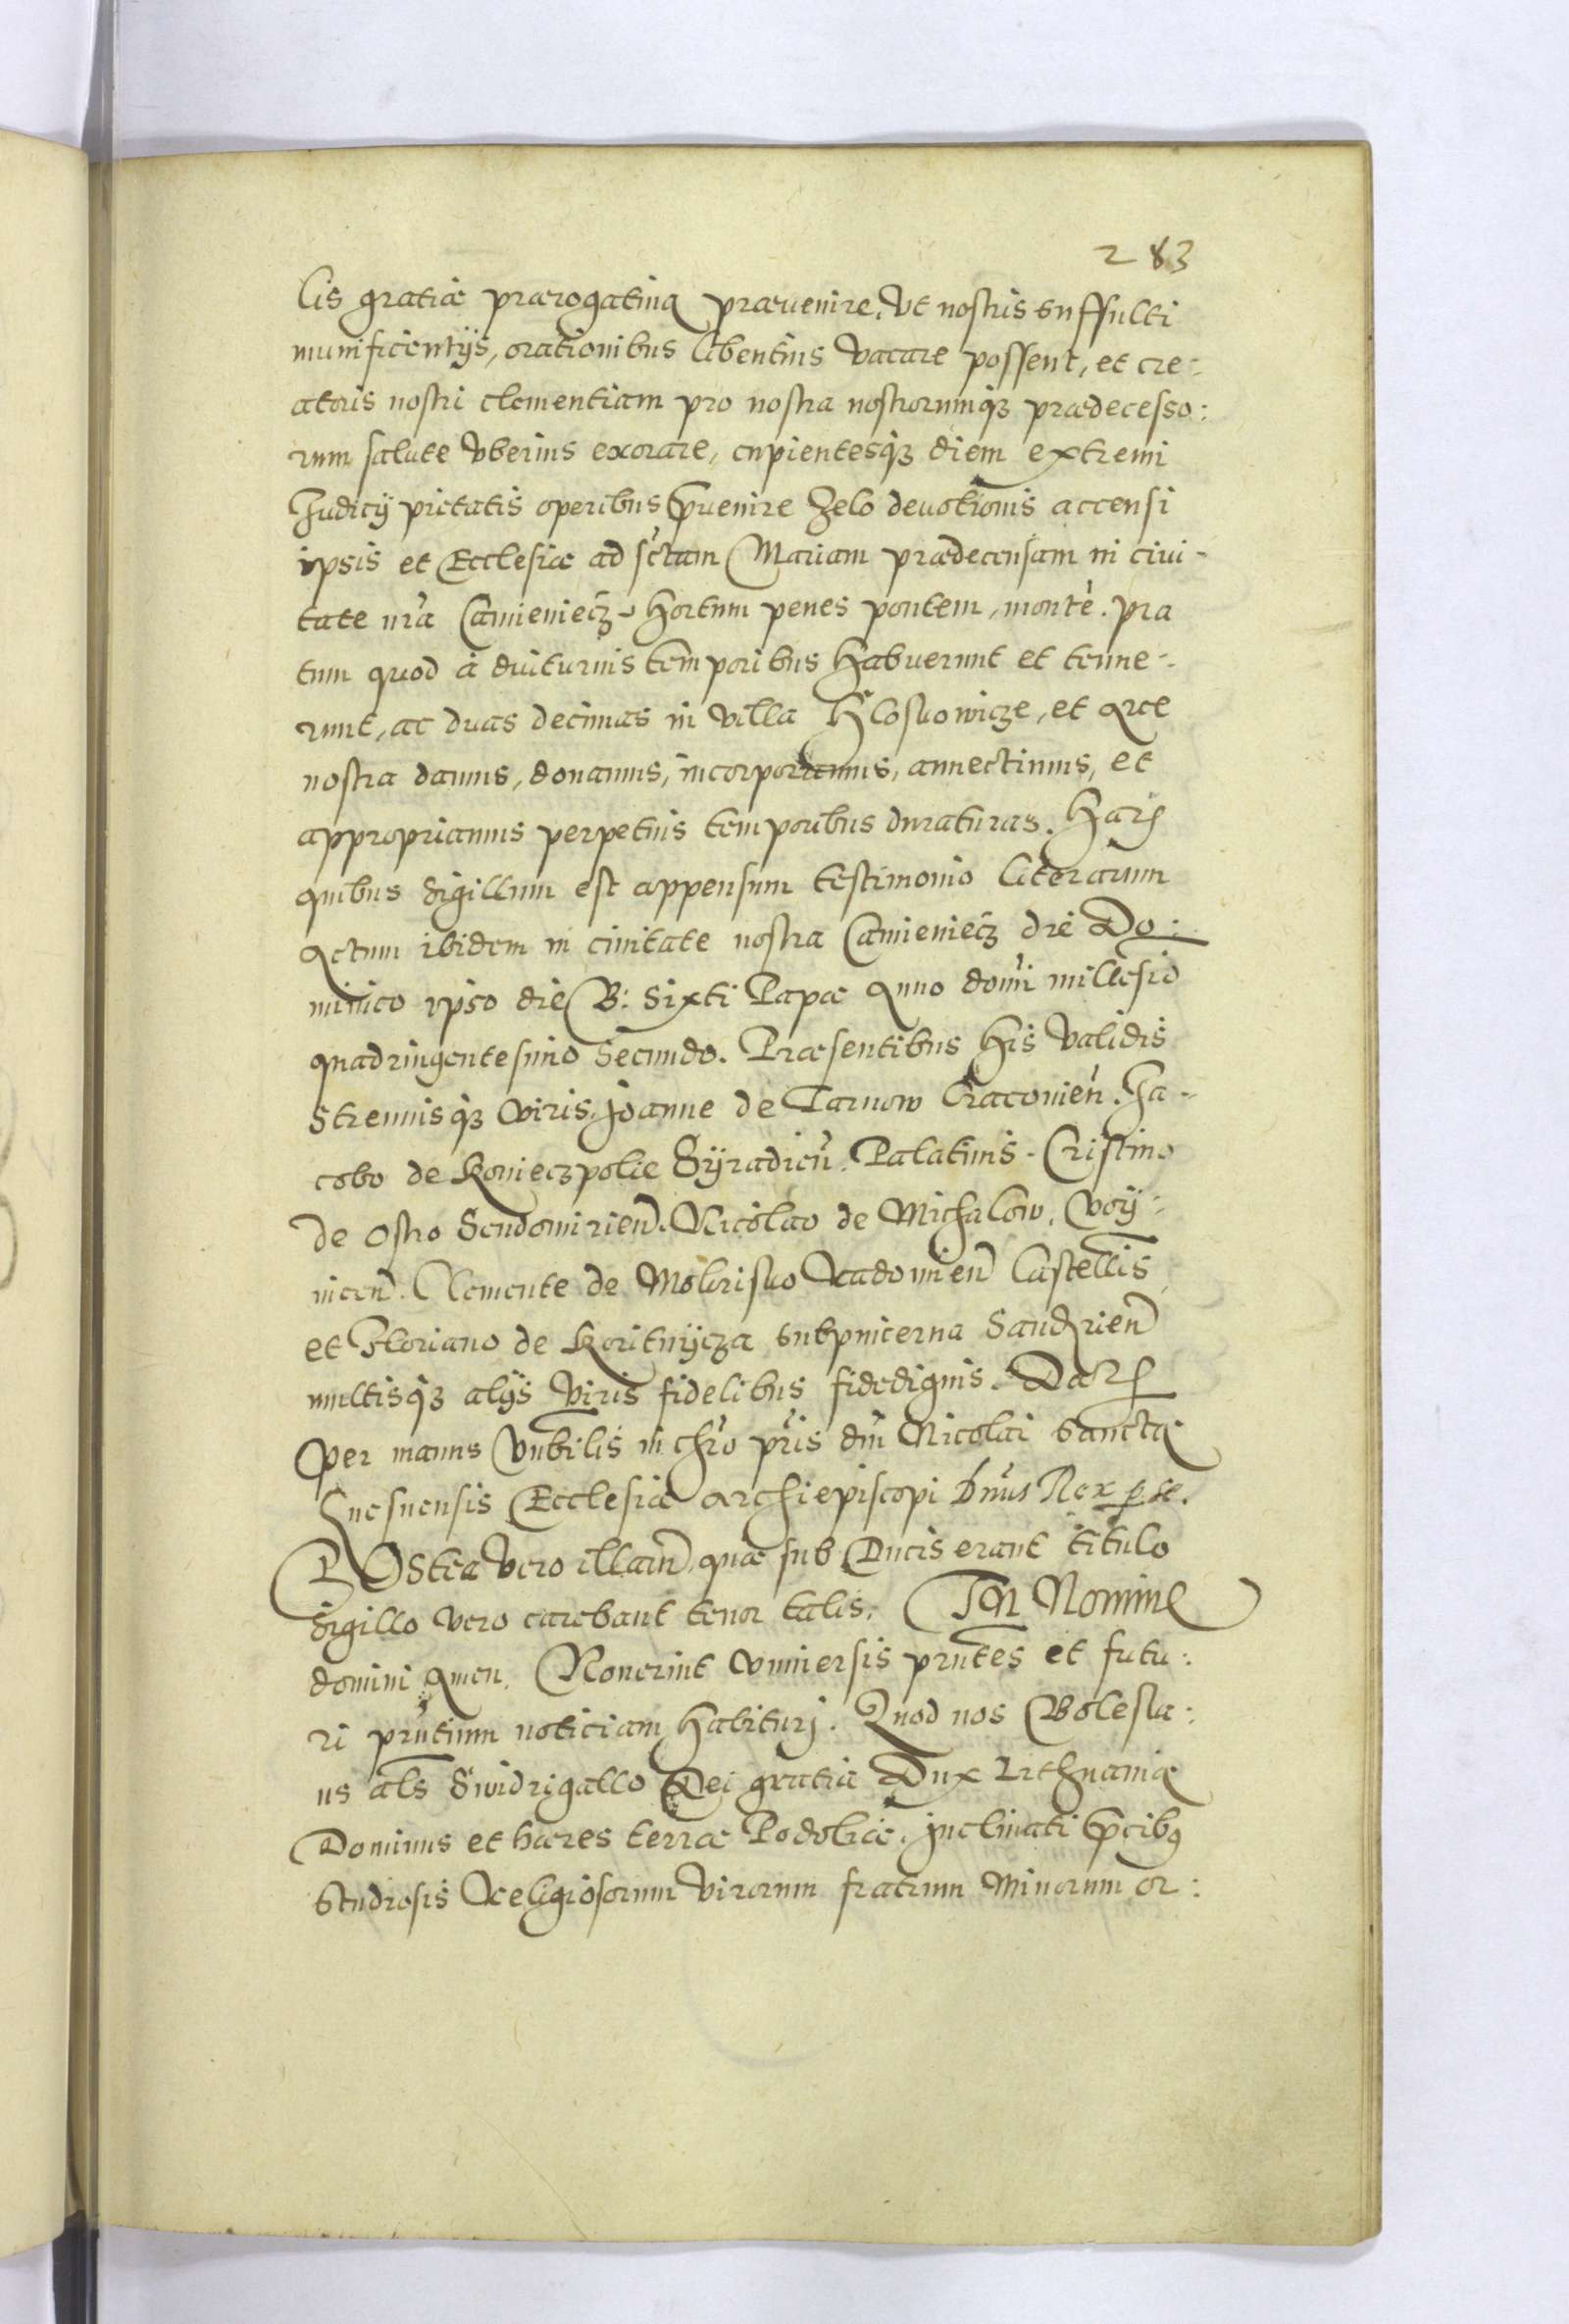 283
lis gratiæ prærogatiua præuenire, vt nostris suffulti
munificentijs, orationibus libentius vacare possent, et cre:
atoris nostri clementiam pro nostra nostrorumq3 prædecesso:
rum salute vberius exorare, cupientesq3 diem extremi
Judicij pietatis operibus p̃uenire Zelo deuotionis accensi
ipsis et Ecclesiæ ad sc̃tam Mariam prædecensam in ciui-
tate nr̃a Camieniecz, Hortum penes pontem, montẽ. pra
tum quod à diuturnis temporibus Habuerunt et tenue:
runt, ac duas decimas in villa Hloskowicze, et arce
nostra damus, donamus, incorporamus, annectimus, et
appropriamus perpetuis temporibus duraturas. Harȝ
quibus sigillum est appensum testimonio literarum
Actum ibidem in ciuitate nostra Camieniecz die Do:
minico ipso die B: Sixti Papæ Anno domĩ millesĩo
quadringentesimo secundo. Præsentibus His validis
Strenuisq3 viris, Joanne de Tarnow Cracouieñ. Ja-
cobo de Koniecz polie Syradieñ. Palatinis. Cristino
de Ostro Sendomirieñ. Nicolao de Michalow, Woy:
niceñ. Clemente de Mokrisko Radomieñ Castellis̃
et Floriano de Koritnÿcza subpincerna Sandrieñ
multisq3 alijs viris fidelibus fidedignis. Datȝ
per manus Vnbilis in chr̃o pr̃is dñi Nicolai Sanctæ
Gnesnensis Ecclesiæ Archiepiscopi Dñus Rex p. se.
POstea vero illarũ, quæ sub Ducis erant titulo
sigillo vero carebant tenor talis. In Nomine
domini Amen. Nouerint vniuersis prñtes et futu:
ri prñtium noticiam Habituri. Quod nos Bolesla:
us als̃ Swidrigallo Dei gratia Dux Lithuaniæ
Dominus et hæres terræ Podoliæ. Inclinati p̃cibꝯ
Studiosis Religiosorum Virorum fratrum Minorum or: